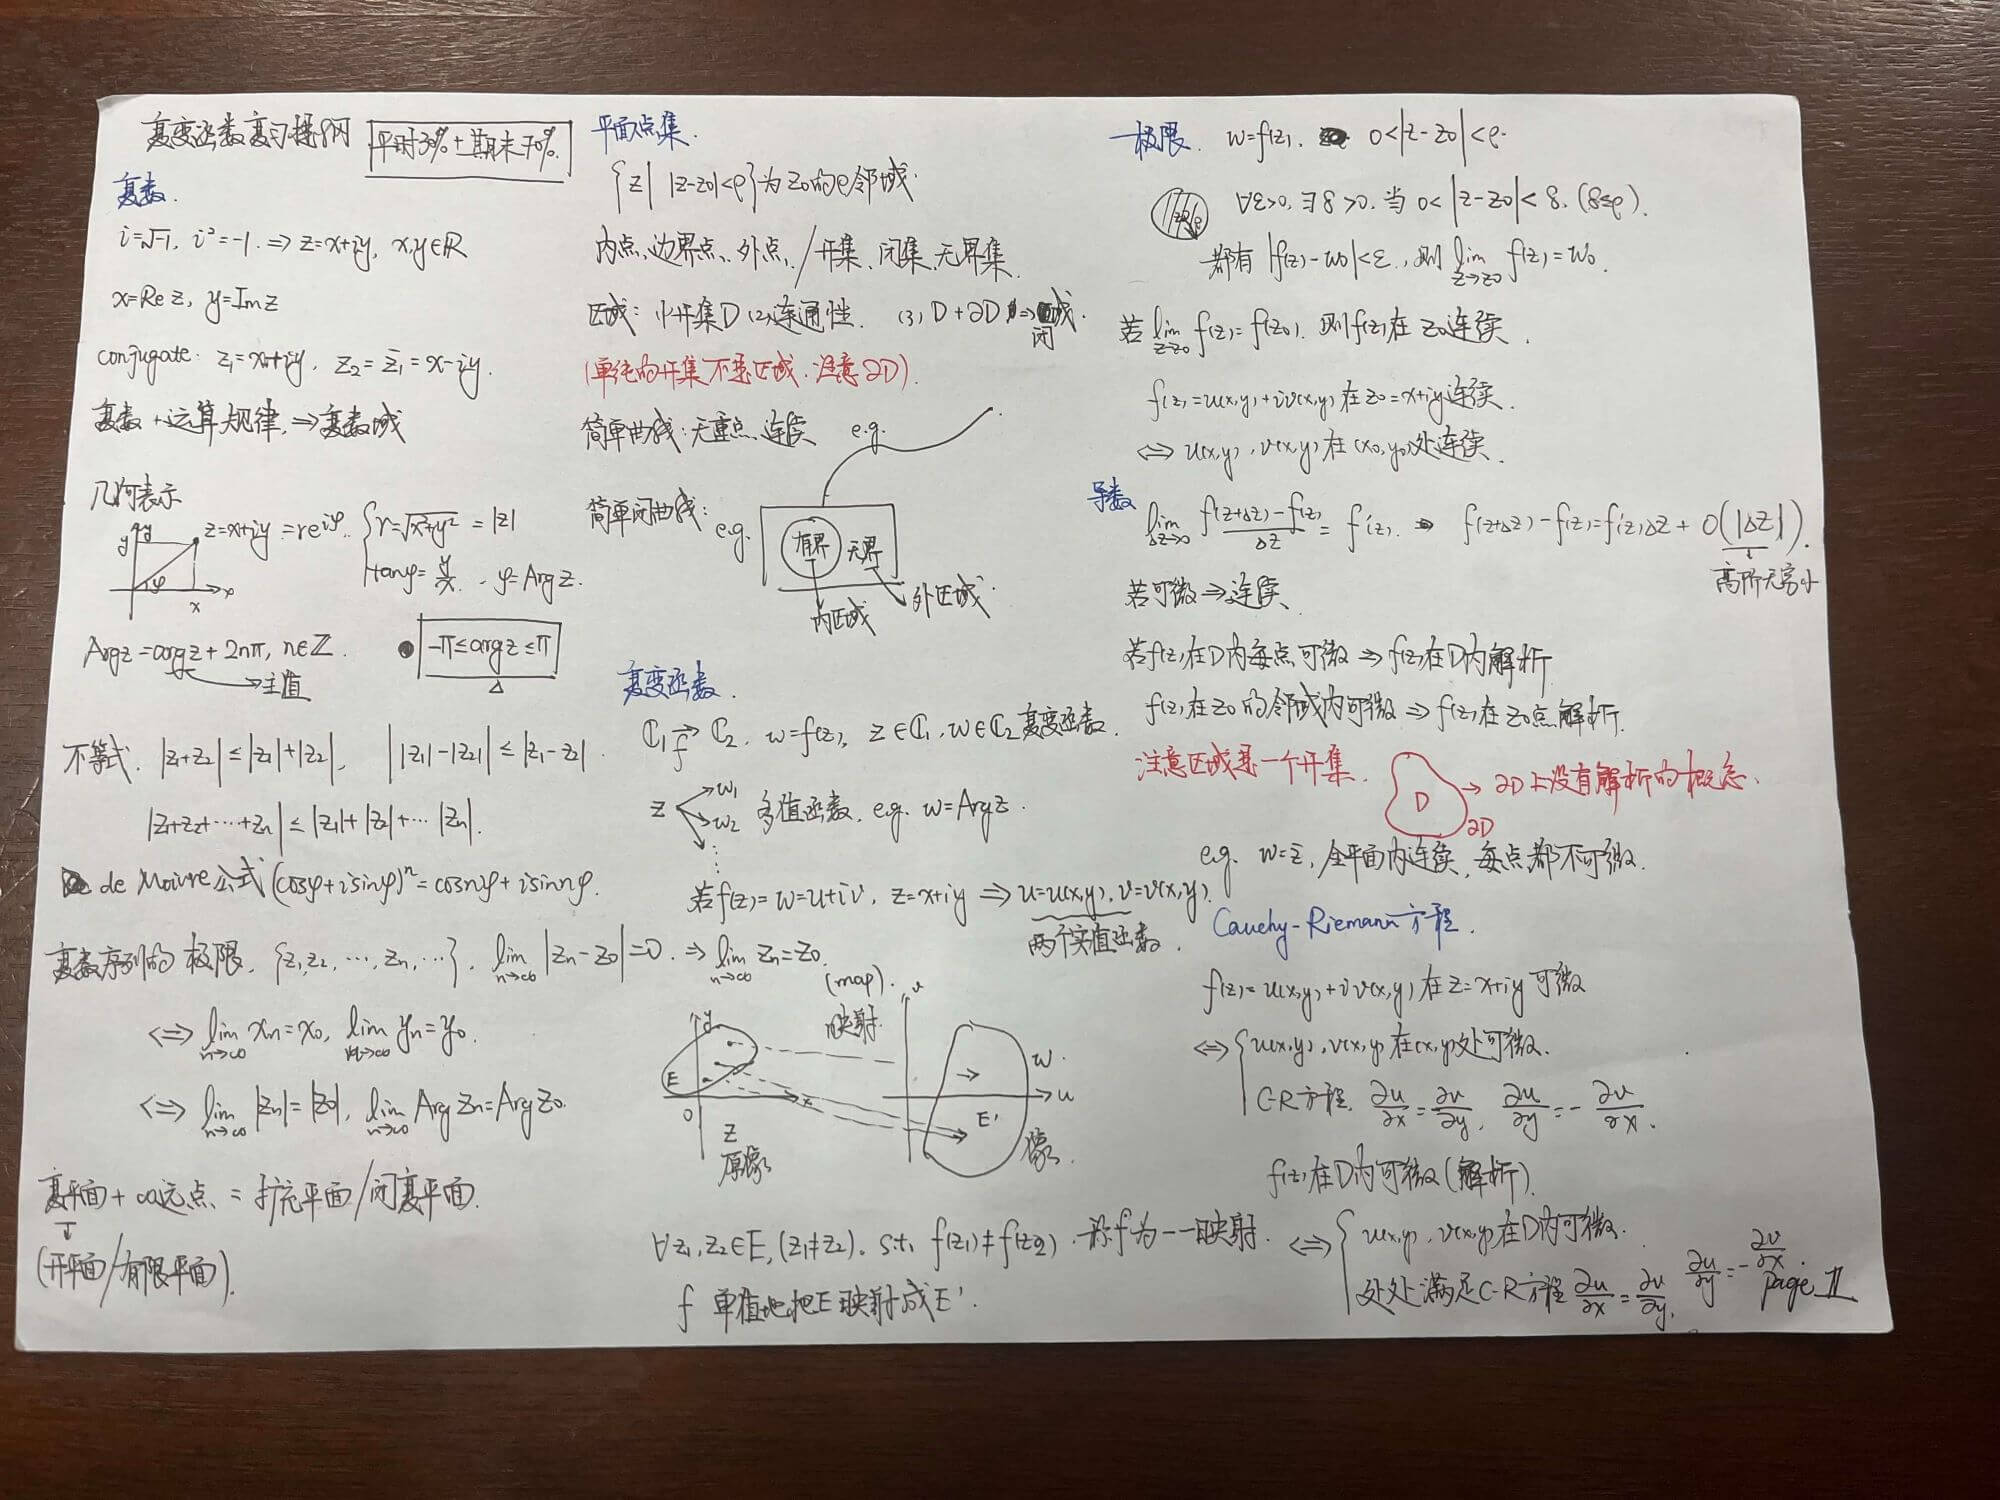 复变函数复习提纲 平时30%+期末70%.
复数.
i=√-1, i²=-1. ⇒ z=x+iy, x,y∈ℝ
x=Re z, y=Im z
conjugate: z₁=x+iy, z₂=z̄₁=x-iy.
复数+运算规律 ⇒ 复数域
几何表示
y y z=x+iy=re^{iφ}. { r=√(x²+y²) = |z|
φ x x tanφ=y/x. φ=Arg z.
Arg z=arg z+2nπ, n∈ℤ. -π≤arg z≤π
→主值 Δ
不等式. |z₁+z₂|≤|z₁|+|z₂|, ||z₁|-|z₂||≤|z₁-z₂|
|z₁+z₂+⋯+zₙ|≤|z₁|+|z₂|+⋯|zₙ|.
de Moivre公式 (cosφ+isinφ)ⁿ=cosnφ+isinnφ.
复数序列的极限. {z₁,z₂,⋯,zₙ,⋯}. lim_{n→∞}|zₙ-z₀|=0. ⇒ lim_{n→∞} zₙ=z₀.
⇔ lim_{n→∞} xₙ=x₀, lim_{n→∞} yₙ=y₀.
⇔ lim_{n→∞}|zₙ|=|z₀|, lim_{n→∞} Arg zₙ=Arg z₀.
复平面+∞远点 = 扩充平面/闭复平面.
↓
(开平面/有限平面).
平面点集.
{z| |z-z₀|<ρ}为z₀的ρ邻域.
内点、边界点、外点、/开集、闭集、无界集.
区域: (1)开集D (2)连通性. (3) D+∂D ⇒ 闭域.
(单纯的开集不是区域. 注意∂D).
简单曲线: 无重点、连续 e.g.
简单闭曲线: e.g. 有界 无界
内区域 外区域.
复变函数.
ℂ₁ →f ℂ₂. w=f(z), z∈ℂ₁, w∈ℂ₂ 复变函数.
z w₁ w₂ ⋮ 多值函数. e.g. w=Arg z.
若f(z)=w=u+iv, z=x+iy ⇒ u=u(x,y), v=v(x,y).
两个实值函数.
(map).
映射.
y E O x z 原像
v w u E' 像.
∀z₁,z₂∈E, (z₁≠z₂). s.t. f(z₁)≠f(z₂). 称f为一一映射.
f 单值地把E映射成E'.
极限. w=f(z). 0<|z-z₀|<ρ.
z₀ ρ ∀ε>0, ∃δ>0. 当0<|z-z₀|<δ. (δ≤ρ).
都有|f(z)-w₀|<ε, 则lim_{z→z₀} f(z)=w₀.
若lim_{z→z₀} f(z)=f(z₀). 则f(z)在z₀连续.
f(z)=u(x,y)+iv(x,y)在z₀=x+iy连续.
⇔ u(x,y), v(x,y)在(x₀,y₀)处连续.
导数 lim_{Δz→0} (f(z+Δz)-f(z))/Δz=f'(z). ⇒ f(z+Δz)-f(z)=f'(z)Δz+O(|Δz|).
↓
高阶无穷小
若可微⇒连续
若f(z)在D内每点可微⇒f(z)在D内解析
f(z)在z₀的邻域内可微⇒f(z)在z₀点解析.
注意区域是一个开集. D ∂D → ∂D上没有解析的概念.
e.g. w=z̄, 全平面内连续, 每点都不可微.
Cauchy-Riemann方程.
f(z)=u(x,y)+iv(x,y)在z=x+iy可微
⇔ { u(x,y), v(x,y)在(x,y)处可微.
C-R方程. ∂u/∂x=∂v/∂y, ∂u/∂y=-∂v/∂x.
f(z)在D内可微(解析).
⇔ { u(x,y), v(x,y)在D内可微.
处处满足C-R方程 ∂u/∂x=∂v/∂y, ∂u/∂y=-∂v/∂x.
page